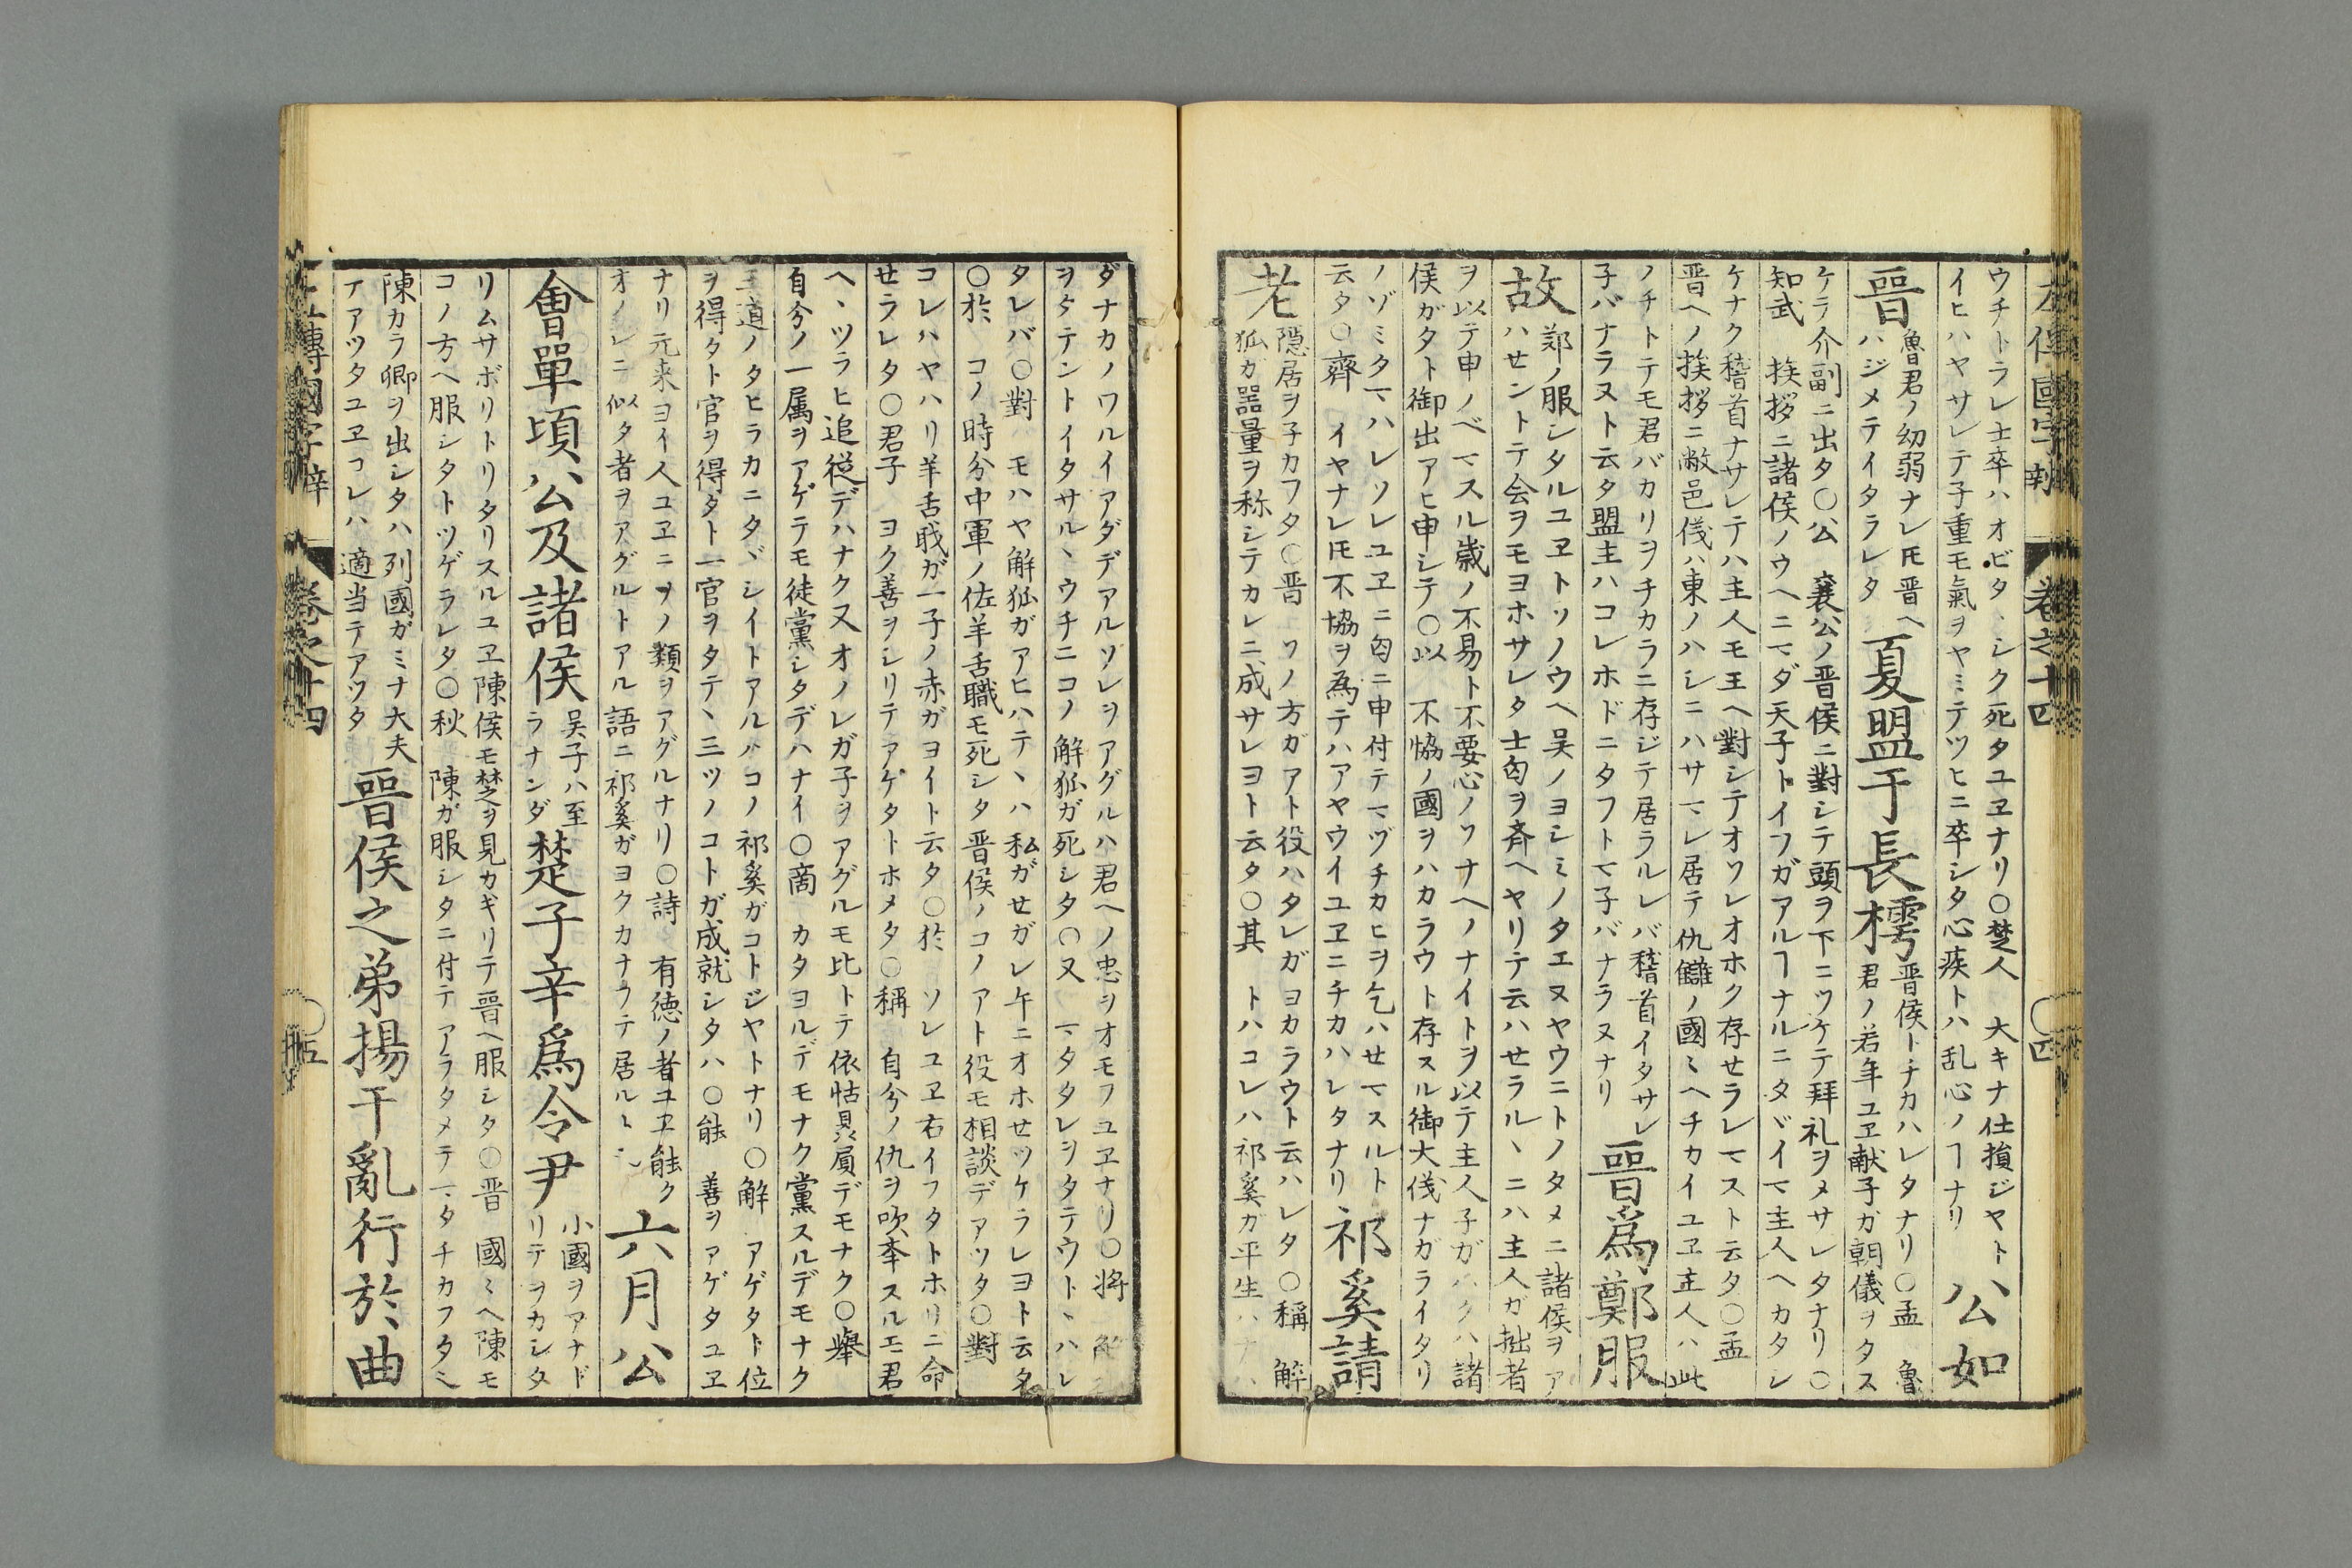 左傳國字辯 卷之十四 〇四
ウチトラレ士卒ハオビタヽシク死タユヱナリ〇楚人 大キナ仕損ジヤト
イヒハヤサレテ子重モ氣ヲヤミテツヒニ卒シタ心疾トハ乱心ノヿナリ
公如
晋
魯君ノ幼弱ナレ𪜈晋ヘ
ハジメテイタラレタ
夏盟于長樗
晋侯トチカハレタナリ〇孟 魯
君ノ若年ユヱ献子ガ朝儀ヲタス
ケラ介副ニ出タ〇公 襄公ノ晋侯ニ對シテ頭ヲ下ニツケテ拜礼ヲメサレタナリ〇
知武 挨拶ニ諸侯ノウヘニマダ天子トイフガアルヿナルニタヾイマ主人ヘカタシ
ケナク稽首ナサレテハ主人モ王ヘ對シテオソレオホク存せラレマスト云タ〇孟
晋ヘノ挨拶ニ敝邑儀ハ東ノハシニハサマレ居テ仇讎ノ國ミヘチカイユヱ主人ハ此
ノチトテモ君バカリヲチカラニ存ジテ居ラルレバ稽首イタサレ
子バナラヌト云タ盟主ハコレホドニタフトマ子バナラヌナリ
晋爲鄭服
故
鄭ノ服シタルユヱトソノウヘ呉ノヨシミノタエヌヤウニトノタメニ諸侯ヲア
ハせントテ会ヲモヨホサレタ士匃ヲ斉ヘヤリテ云ハせラルヽニハ主人ガ拙者
ヲ以テ申ノベマスル歳ノ不易ト不要心ノソナヘノナイトヲ以テ主人子ガハクハ諸
侯ガタト御出アヒ申シテ〇以 不協ノ國ヲハカラウト存スル御大儀ナガライタリ
ノゾミタマハレソレユヱニ匃ニ申付テマヅチカヒヲ乞ハせマスルト
云タ〇齊 イヤナレ𪜈不協ヲ為テハアヤウイユヱニチカハレタナリ
祁奚請
老
隠居ヲ子カフタ〇晋 ソノ方ガアト役ハタレガヨカラウト云ハレタ〇稱 解
狐ガ器量ヲ称シテカレニ成サレヨト云タ〇其 トハコレハ祁奚ガ平生ハナハ
ダナカノワルイアダデアルソレヲアグルハ君ヘノ忠ヲオモフユヱナリ〇将 解
ヲタテントイタサルヽウチニコノ解狐ガ死シタ〇又 マタタレヲタテウトヽハレ
タレバ〇對 モハヤ解狐ガアヒハテヽハ私ガせガレ午ニオホせツケラレヨト云タ
〇於 コノ時分中軍ノ佐羊舌職モ死シタ晋侯ノコノアト役モ相談デアツタ〇對
コレハヤハリ羊舌戝ガ一子ノ赤ガヨイト云タ〇於 ソレユヱ右イフタトホリニ命
せラレタ〇君子 ヨク善ヲシリテアゲタトホメタ〇稱 自分ノ仇ヲ吹挙スルモ君
ヘヽツラヒ追從デハナク又オノレガ子ヲアグルモ比トテ依怙贔屓デモナク〇舉
自分ノ一属ヲアゲテモ徒黨シタデハナイ〇商 カタヨルデモナク黨スルデモナク
王道ノタヒラカニタヾシイトアルハコノ祁奚ガコトジヤトナリ〇解 アゲタト位
ヲ得タト官ヲ得タト一官ヲタテヽ三ツノコトガ成就シタハ〇能 善ヲアゲタユヱ
ナリ元来ヨイ人ユヱニソノ類ヲアグルナリ〇詩 有徳ノ者ユヱ能ク
オノレニ似タ者ヲアグルトアル語ニ祁奚ガヨクカナフテ居ル
六月公
會單頃公及諸侯
呉子ハ至
ラナンダ
楚子辛爲令尹
小國ヲアナド
リテヲカシタ
リムサボリトリタリスルユヱ陳侯モ楚ヲ見カギリテ晋ヘ服シタ〇晋 國ミヘ陳モ
コノ方ヘ服シタトツゲラレタ〇秋 陳ガ服シタニ付テアラタメテマタチカフタミ
陳カラ卿ヲ出シタハ列國ガミナ大夫
アアツタユヱコレハ適当テアツタ
晋侯之弟揚干亂行於曲
左傳國字辯 卷之十四 〇五